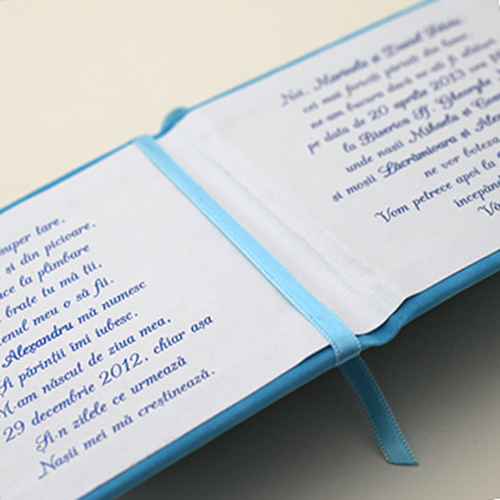 super tare,
și din picioare,
la plimbare
brațe tu mă ții,
meu o să fii.
Alexandru mă numesc
Și părinții îmi iubesc.
M-am născut de ziua mea,
29 decembrie 2012, chiar așa
Și-n zilele ce urmează
Nașii mei mă creștinează.
Noi, Marinela și Daniel
cei mai fericiți părinți din lume,
ne-am bucura dacă ne-ați fi alături
pe data de 20 aprilie 2013 ora
la Biserica Sf. Gheorghe
unde nașii Mihaela și
și moșii Lăcrămioara și
ne vor boteza
Vom petrece apoi la
începând